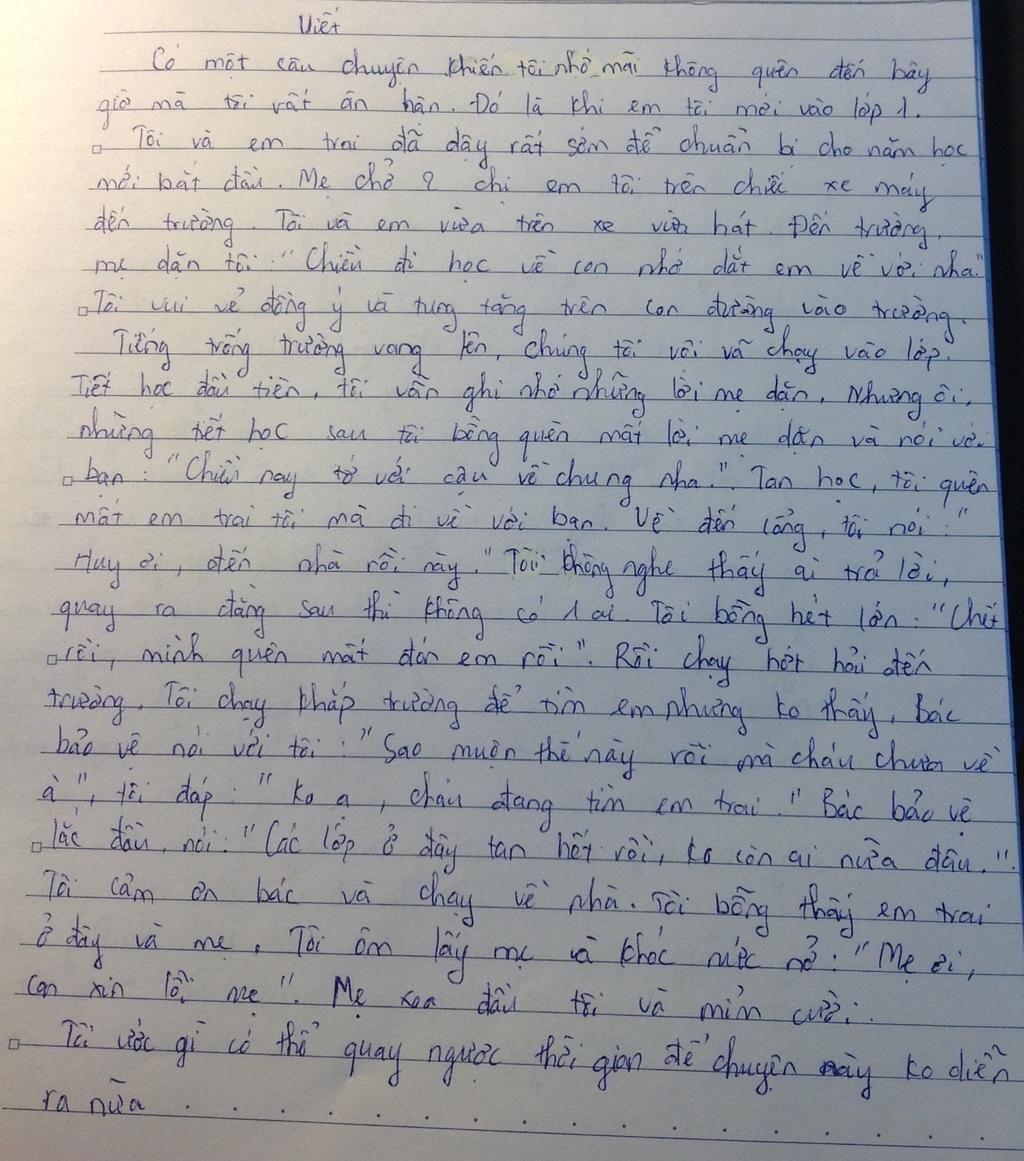 Viết
Có một câu chuyện khiến tôi nhớ mãi không quên đến bây
giờ mà tôi rất ân hận. Đó là khi em tôi mới vào lớp 1.
Tôi và em trai đã dậy rất sớm để chuẩn bị cho năm học
mới bắt đầu. Mẹ chở 2 chị em tôi trên chiếc xe máy
đến trường. Tôi và em vừa trên xe vừa hát. Đến trường,
mẹ dặn tôi: "Chiều đi học về con nhớ dắt em về với nha."
Tôi vui vẻ đồng ý và tung tăng trên con đường vào trường.
Tiếng trống trường vang lên, chúng tôi vội vã chạy vào lớp.
Tiết học đầu tiên, tôi vẫn ghi nhớ những lời mẹ dặn, Nhưng ôi,
những tiết học sau tôi bỗng quên mất lời mẹ dặn và nói với
bạn: "Chiều nay tớ với cậu về chung nha.". Tan học, tôi quên
mất em trai tôi mà đi về với bạn. Về đến cổng, tôi nói: "
Huy ơi, đến nhà rồi này." Tôi không nghe thấy ai trả lời,
quay ra đằng sau thì không có 1 ai. Tôi bỗng hét lớn: "Chết
rồi, mình quên mất đón em rồi". Rồi chạy hớt hải đến
trường. Tôi chạy khắp trường để tìm em nhưng ko thấy, Bác
bảo vệ nói với tôi: "Sao muộn thế này rồi mà cháu chưa về
à", tôi đáp: "Ko ạ, cháu đang tìm em trai." Bác bảo vệ
lắc đầu, nói: "Các lớp ở đây tan hết rồi, ko còn ai nữa đâu.".
Tôi cảm ơn bác và chạy về nhà. Tôi bỗng thấy em trai
ở đây và mẹ. Tôi ôm lấy mẹ và khóc nức nở: "Mẹ ơi,
con xin lỗi mẹ". Mẹ xoa đầu tôi và mỉm cười.
Tôi ước gì có thể quay ngược thời gian để chuyện này ko diễn
ra nữa . . . . . . . . . . . . . . .